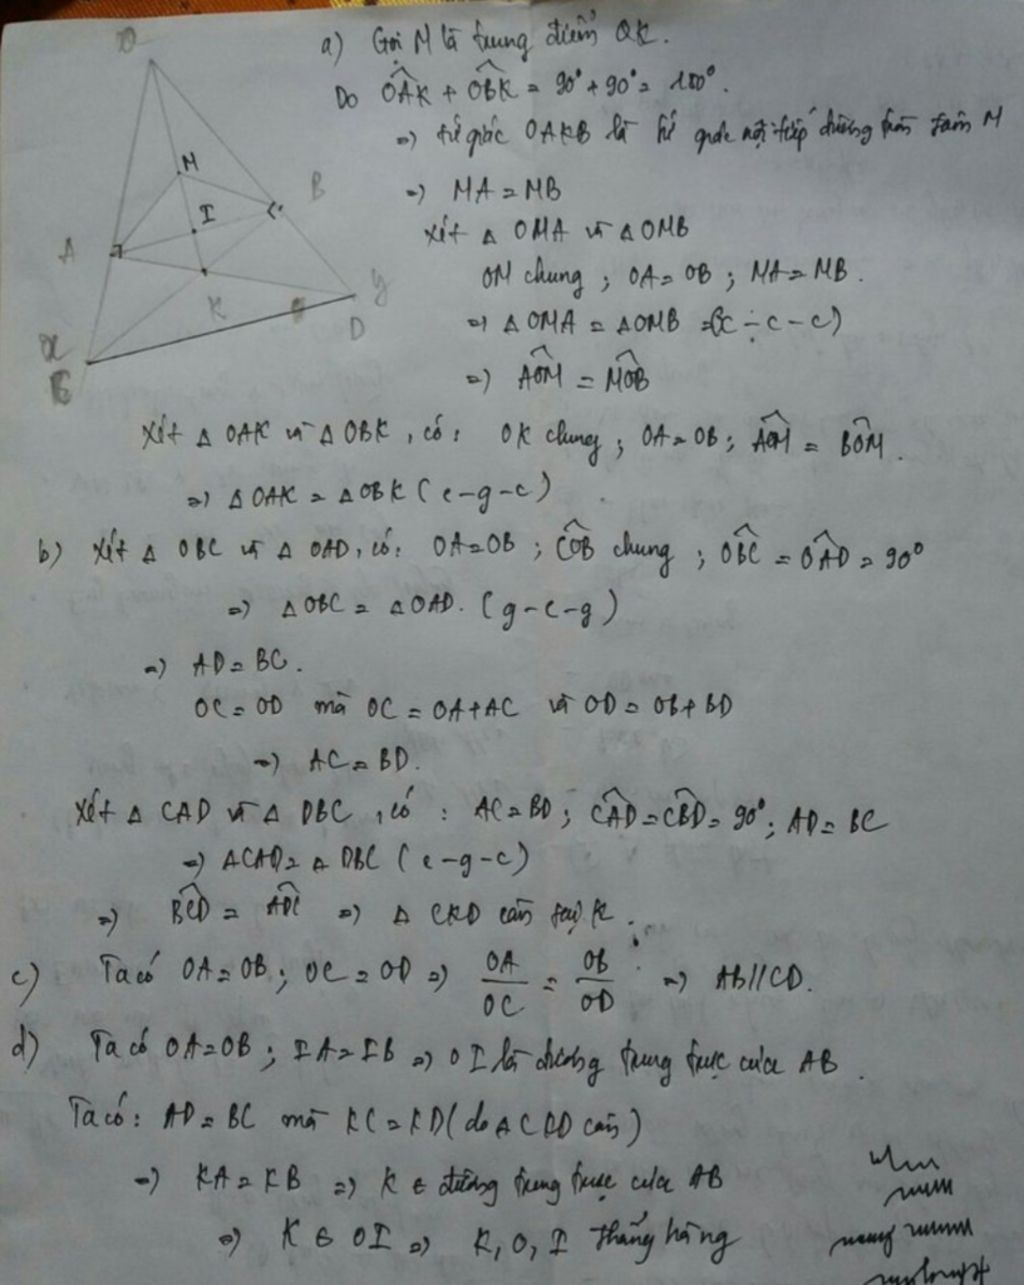 O
M
B
I
A
K
y
D
x
C
a) Gọi M là trung điểm OK.
Do OAK + OBK = 90° + 90° = 180°.
=> tứ giác OAKB là tứ giác nội tiếp đường tròn tâm M
=> MA = MB
Xét Δ OMA và Δ OMB
OM chung ; OA = OB ; MA = MB.
=> Δ OMA = Δ OMB (c - c - c)
=> AOM = MOB
Xét Δ OAK và Δ OBK, có : OK chung ; OA = OB ; AOM = BOM.
=> Δ OAK = Δ OBK (c-g-c)
b) Xét Δ OBC và Δ OAD, có: OA = OB ; COB chung ; OBC = OAD = 90°
=> Δ OBC = Δ OAD. (g-c-g)
=> AD = BC.
OC = OD mà OC = OA + AC và OD = OB + BD
=> AC = BD.
Xét Δ CAD và Δ DBC, có : AC = BD ; CAD = CBD = 90° ; AD = BC
=> ΔCAD = Δ DBC (c-g-c)
=> BCD = ADC => Δ CKD cân tại K.
c) Ta có OA = OB ; OC = OD => OA/OC = OB/OD => AB // CD.
d) Ta có OA = OB ; IA = IB => OI là đường trung trực của AB.
Ta có : AD = BC mà KC = KD (do Δ CKD cân)
=> KA = KB => K ∈ đường trung trực của AB
=> K ∈ OI => K, O, I thẳng hàng